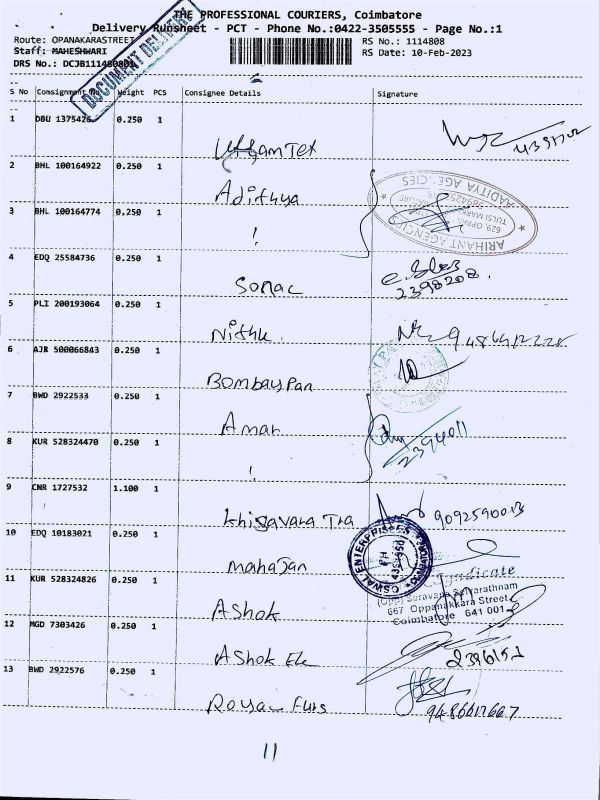 THE PROFESSIONAL COURIERS, Coimbatore
Delivery Runsheet - PCT - Phone No.:0422-3505555 - Page No.:1
Route: OPANAKARASTREET
RS No.: 1114808
Staff: MAHESHWARI
RS Date: 10-Feb-2023
DRS No.: DCJB111480801
DOCUMENT DELIVERY
S No Consignment No Weight PCS Consignee Details Signature
1 DBU 1375426 0.250 1
2 BHL 100164922 0.250 1 Adithya
3 BHL 100164774 0.250 1 !
ARIHANT AGENCIES
AADITYA AGENCIES
4 EDQ 25584736 0.250 1 Sonac
2398208.
5 PLI 200193064 0.250 1 Nithk
6 AJR 500066843 0.250 1 Bombay Pan
7 BWD 2922533 0.250 1 Amar
2394011
8 KUR 528324470 0.250 1 !
9 CNR 1727532 1.100 1 Khisavara Tra 9092590013
10 EDQ 10183021 0.250 1 Mahajan
OSWAL ENTERPRISES
11 KUR 528324826 0.250 1 Ashok
Syndicate
(Opp) Saravana Selvarathnam
667 Oppanakkara Street
Coimbatore 641 001
12 MGD 7303426 0.250 1 Ashok Ele
13 BWD 2922576 0.250 1 Royal Furs
11